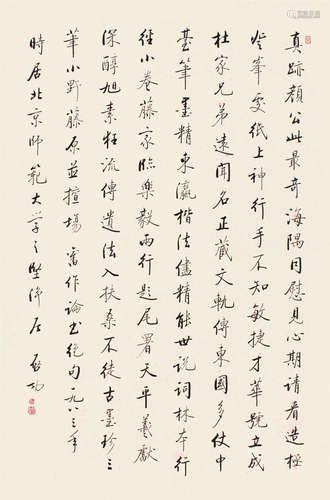 真跡顏公此最奇海隅同慰見心期請看造極
登峯處紙上神行手不知敏捷才華號立成
杜家兄弟遠聞名正藏文軌傳東國多仗中
臺筆墨精東瀛楷法儘精能世說詞林本行
經小卷藤家臨樂毅兩行題尾署天平羲獻
深醇旭素狂流傳遺法入扶桑不徒古墨珍三
筆小野藤原並擅場 舊作論書絕句一九八三年
時居北京師範大学之堅淨居 啟功